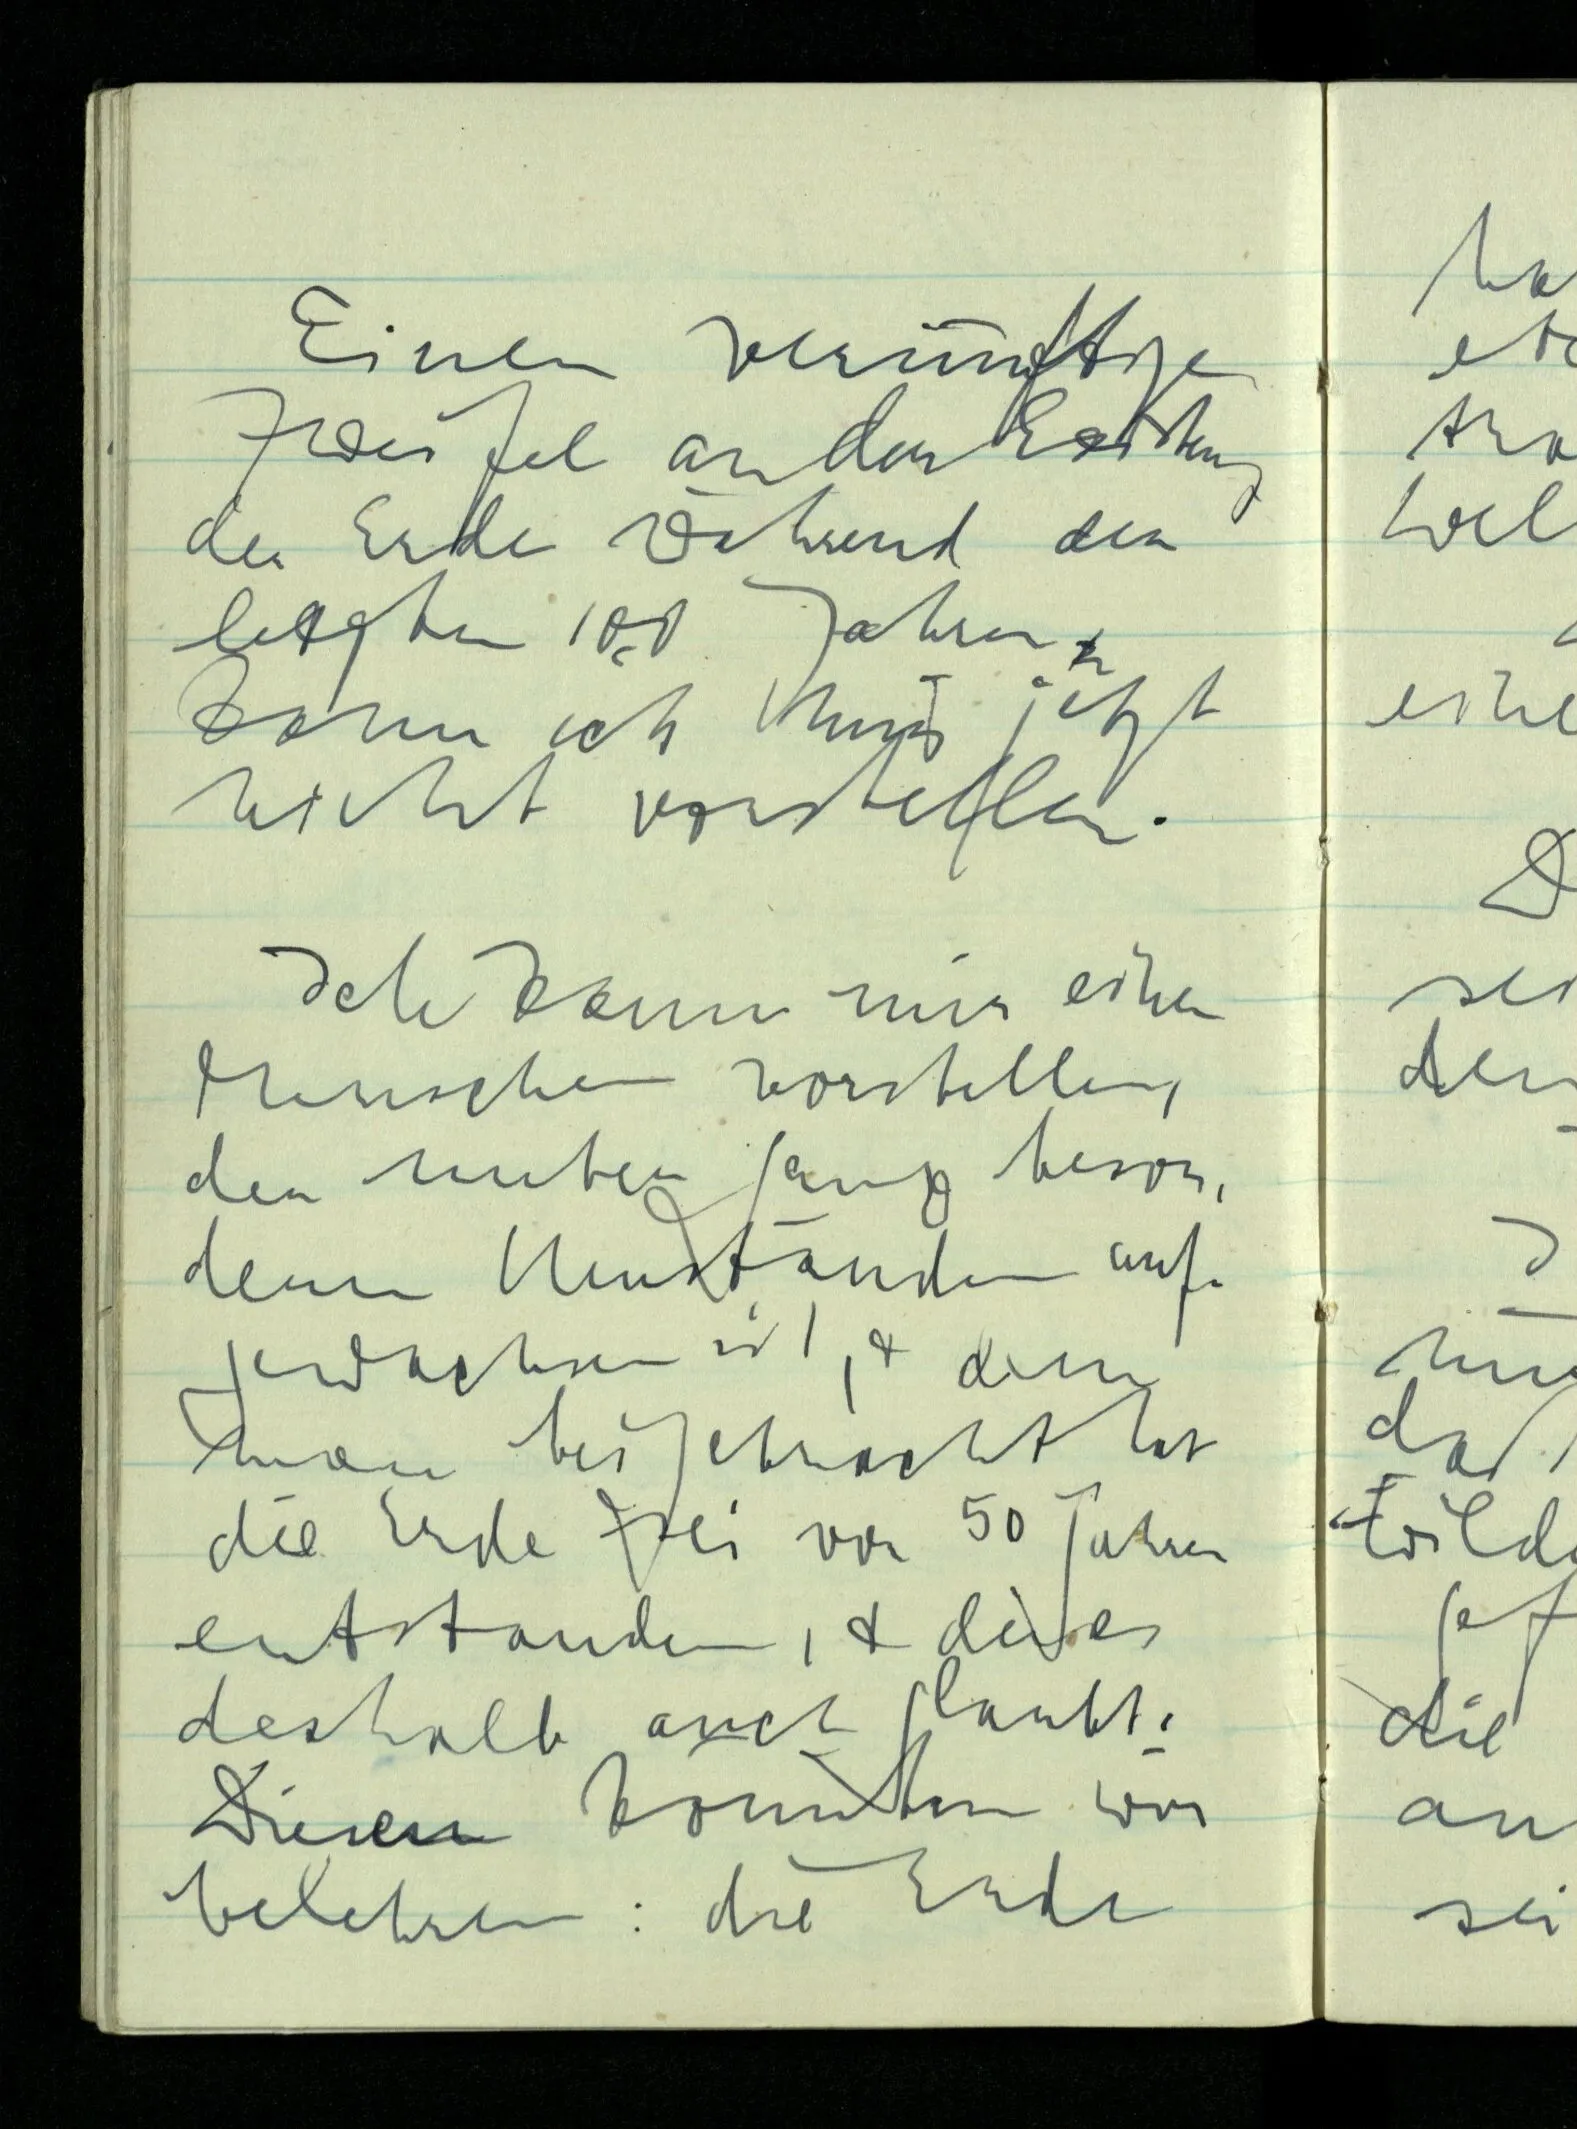 Einen vernünftigen
Zweifel an der Existenz
der Erde während den
letzten 100 Jahren
kann ich mir jetzt
nicht vorstellen.
Ich kann mir einen
Menschen vorstellen,
der unter ganz beson¬
deren Umständen auf¬
gewachsen ist, & dem
man beigebracht hat
die Erde sei vor 50 Jahren
entstanden, & dieses
deshalb auch glaubt.
Diesen könnten wir
belehren: die Erde
ha
et
tra
wel
eine
D
sei
den
I
daß
wild
gef
die
an
sei